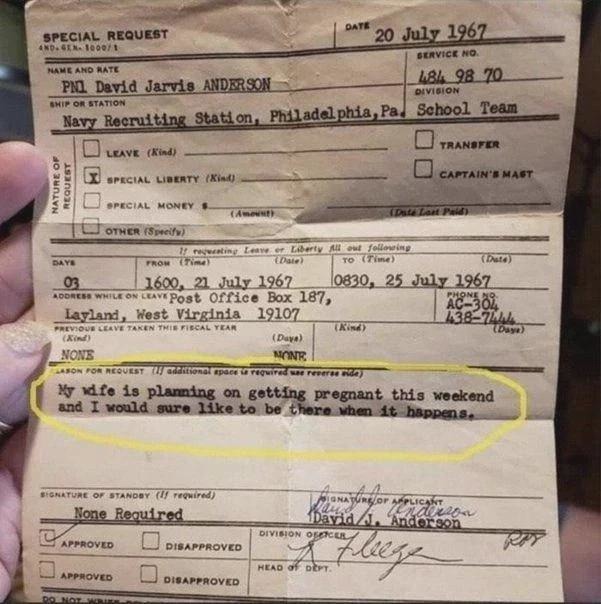 SPECIAL REQUEST
DATE 20 July 1967
SERVICE NO.
NAME AND RATE
484 98 70
PN1 David Jarvis ANDERSON
DIVISION
SHIP OR STATION
Navy Recruiting Station, Philadelphia, Pa. School Team
NATURE OF REQUEST
LEAVE (Kind)
TRANSFER
X SPECIAL LIBERTY (Kind)
CAPTAIN'S MAST
SPECIAL MONEY $
(Amount) (Date Last Paid)
OTHER (Specify)
If requesting Leave or Liberty fill out following
DAYS FROM (Time) (Date) TO (Time) (Date)
03 1600, 21 July 1967 0830, 25 July 1967
ADDRESS WHILE ON LEAVE Post Office Box 187,
PHONE NO.
AC-304
Layland, West Virginia 19107
438-7444
PREVIOUS LEAVE TAKEN THIS FISCAL YEAR
(Kind) (Days) (Kind) (Days)
NONE NONE
REASON FOR REQUEST (If additional space is required use reverse side)
My wife is planning on getting pregnant this weekend
and I would sure like to be there when it happens.
SIGNATURE OF STANDBY (If required)
SIGNATURE OF APPLICANT
David J. Anderson
None Required
David J. Anderson
APPROVED DISAPPROVED
DIVISION OFFICER
APPROVED DISAPPROVED
HEAD OF DEPT.
DO NOT WRITE